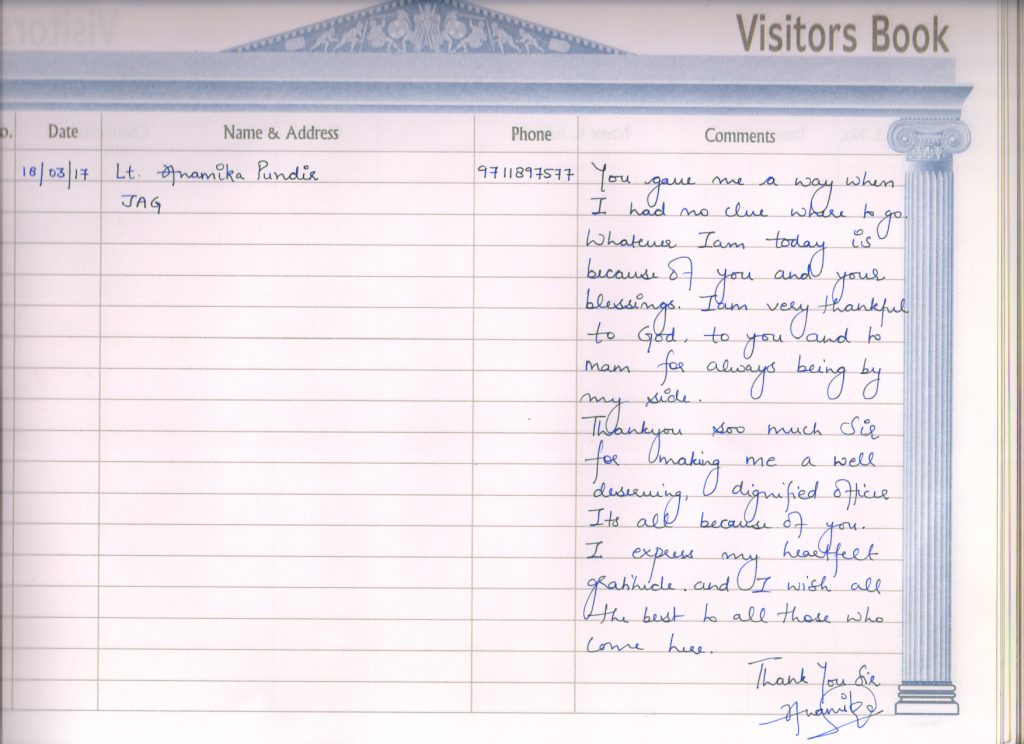 Visitors Book
o. Date Name & Address Phone Comments
18/03/17 Lt. Anamika Pundir 9711897577 You gave me a way when
JAG I had no clue where to go.
Whatever Iam today is
because of you and your
blessings. Iam very thankful
to God, to you and to
mam for always being by
my side.
Thankyou soo much Sir
for making me a well
deserving, dignified officer
Its all because of you.
I express my heartfelt
gratitude. and I wish all
the best to all those who
come here.
Thank You Sir
Anamika